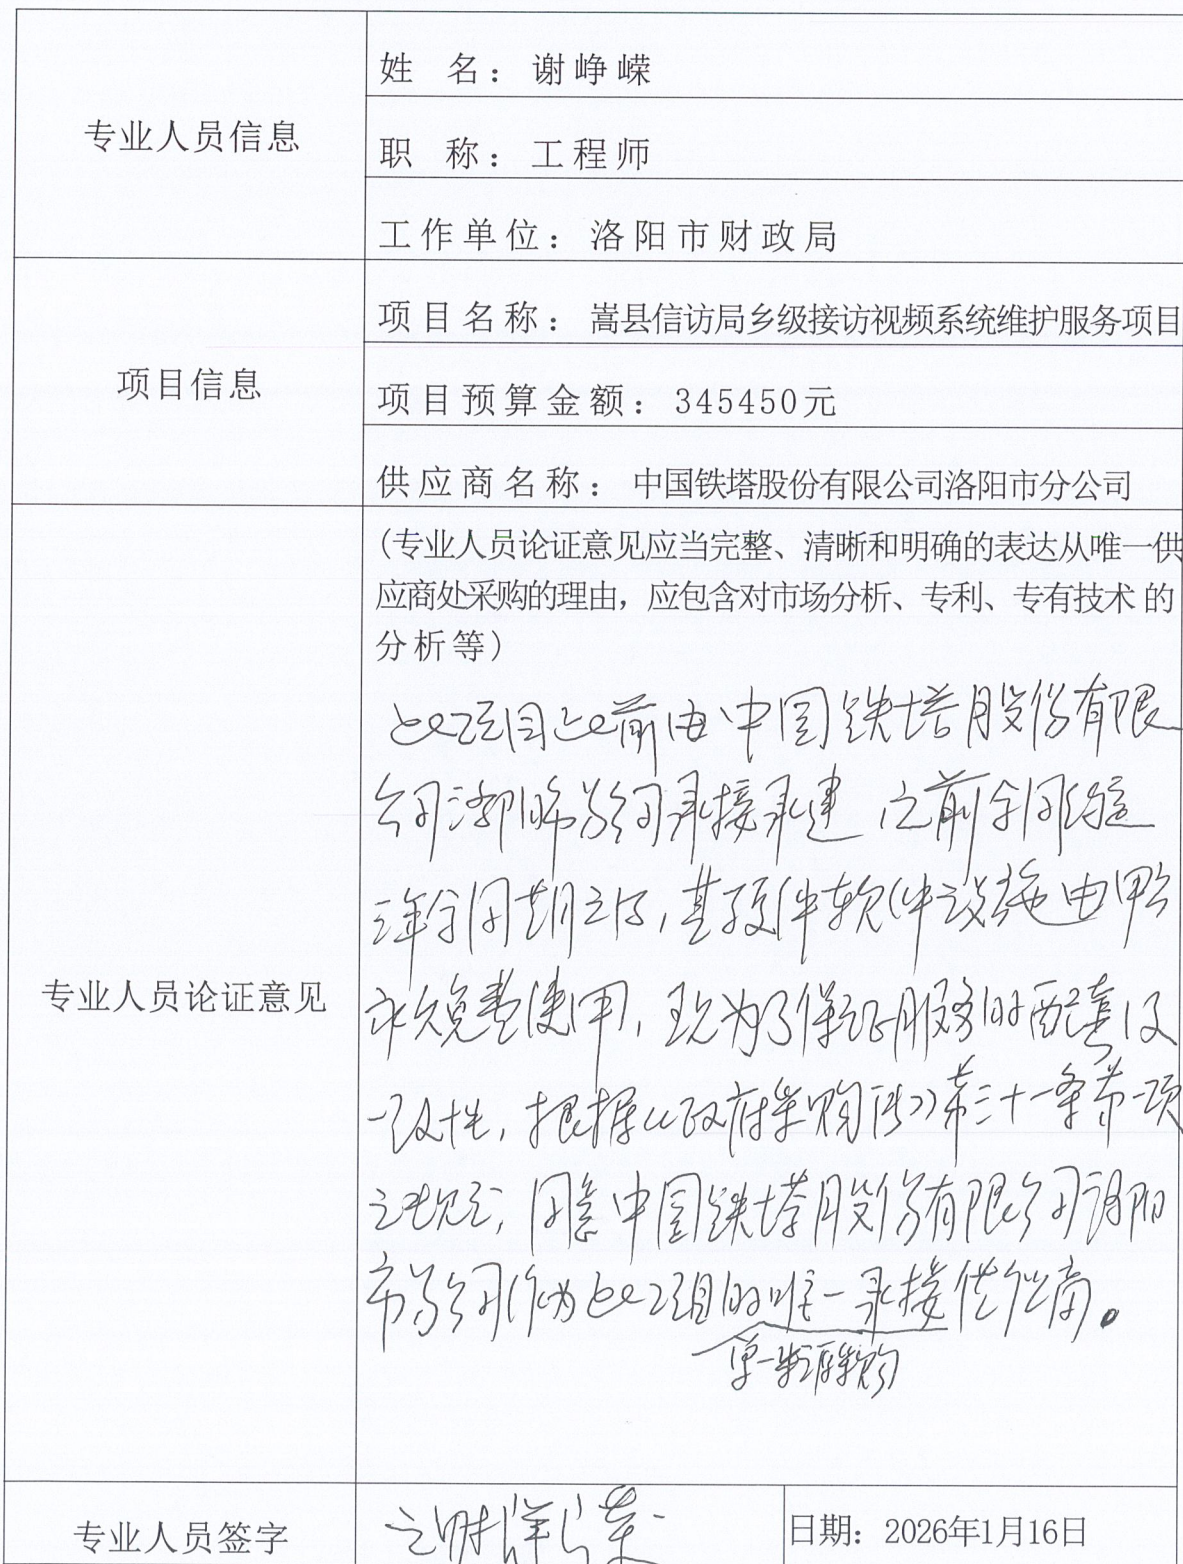 专业人员信息
姓 名：谢峥嵘
职 称：工程师
工作单位：洛阳市财政局
项目信息
项目名称：嵩县信访局乡级接访视频系统维护服务项目
项目预算金额：345450元
供应商名称：中国铁塔股份有限公司洛阳市分公司
专业人员论证意见
(专业人员论证意见应当完整、清晰和明确的表达从唯一供
应商处采购的理由，应包含对市场分析、专利、专有技术 的
分析等)
此项目此前由中国铁塔股份有限
公司洛阳市分公司承接承建 之前合同约定
三年合同期之后，基硬件软件设施由甲方
永久免费使用，现为了保证服务的配套及
一致性，根据《政府采购法》第三十一条第一项
之规定，同意中国铁塔股份有限公司洛阳
市分公司作为此项目的唯一承接供应商。
单一来源采购
专业人员签字
谢峥嵘
日期：2026年1月16日